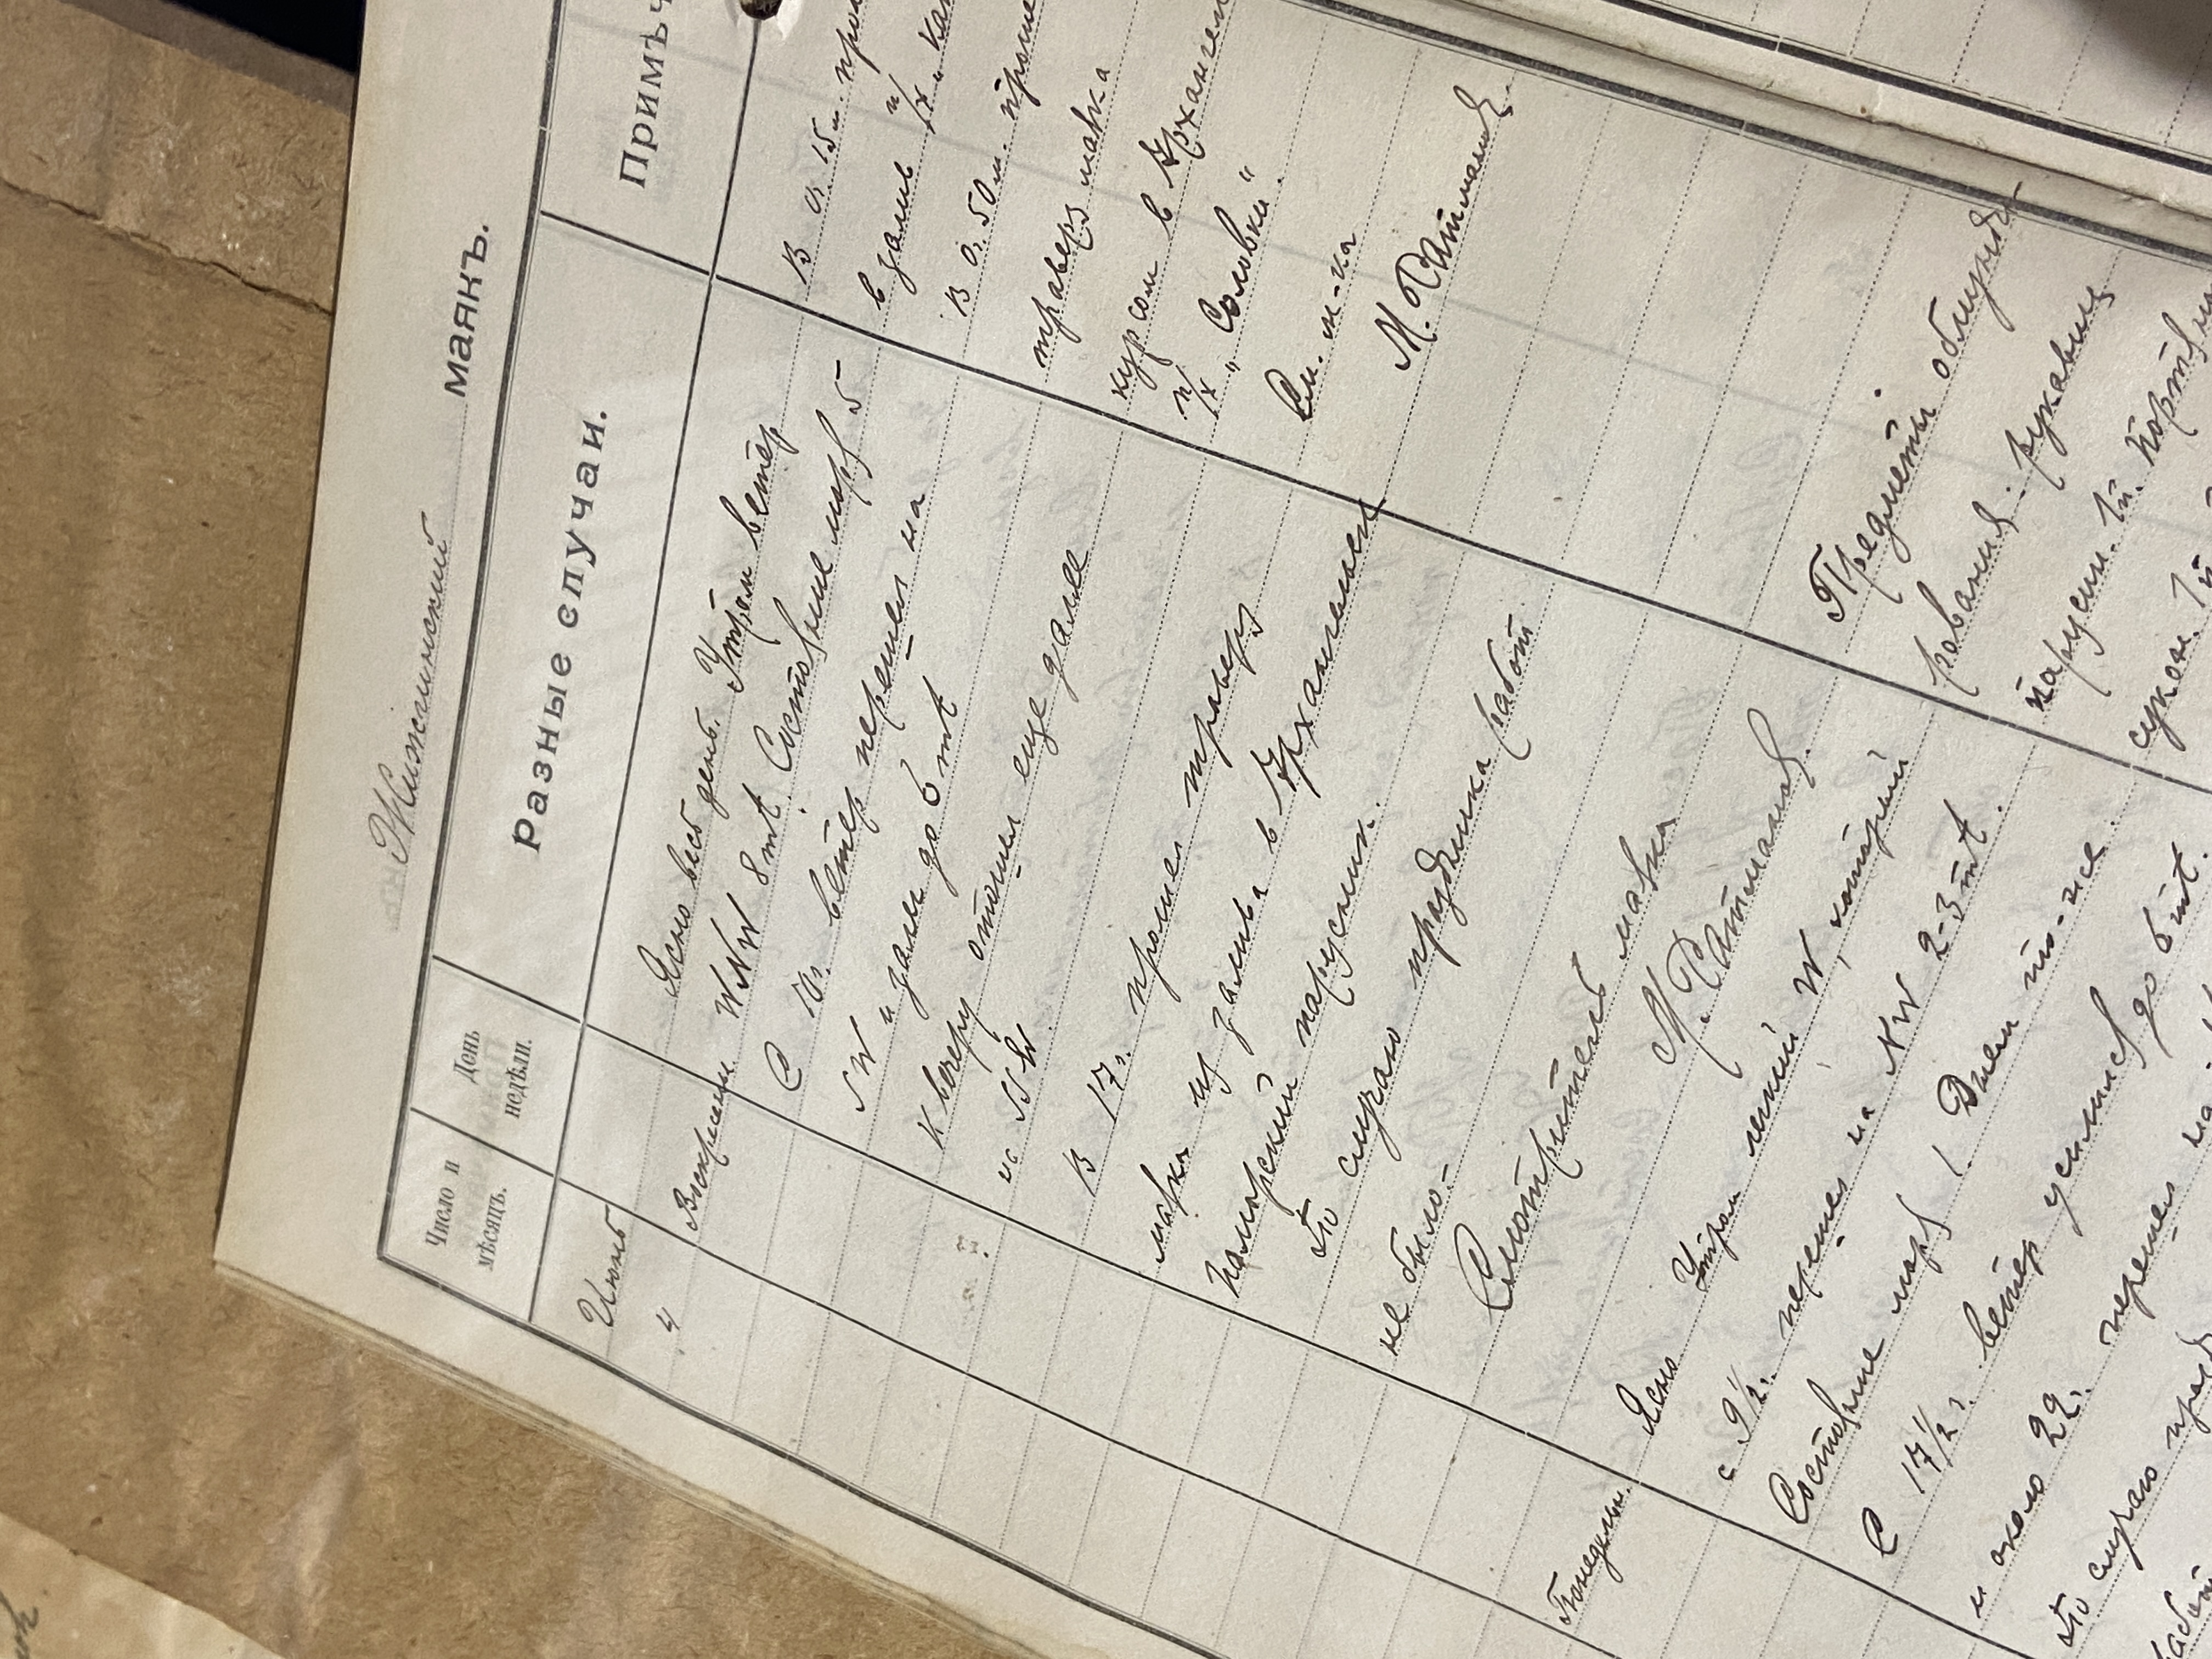 Жижгинский маякъ.
Число и мѣсяцъ.
День недѣли.
Разные случаи.
Примѣч
Июнь
4
Воскресен.
Ясно весь день. Утром ветер
WNW 8 mt. Состояние моря 5
С 10ч. ветер перешел на
SW и далее до 6 mt
К вечеру отошел еще далее
на SSW.
В 17ч. прошел траверз
маяка из залива в Архангельск
поморский парусник.
По случаю праздника работ
не было-
Смотритель маяка
М. Ратманов.
В 0ч. 15м.
в залив п/х
В 0ч. 50м.
траверз маяка
курсом в Архангел
п/х "Соловки".
См. м-ка
М. Ратманов.
Понедельн.
Ясно Утром легкий W, который
с 9 1/2 ч. перешел на NW 2-3 mt.
Состояние моря 1. Днем то-же.
С 17 1/2 ч. ветер усилился до 6 mt.
и около 22ч. перешел на
По случаю
Предметы обмунди
рования. рукавиц
парусин. 1п.
сукон. 1п